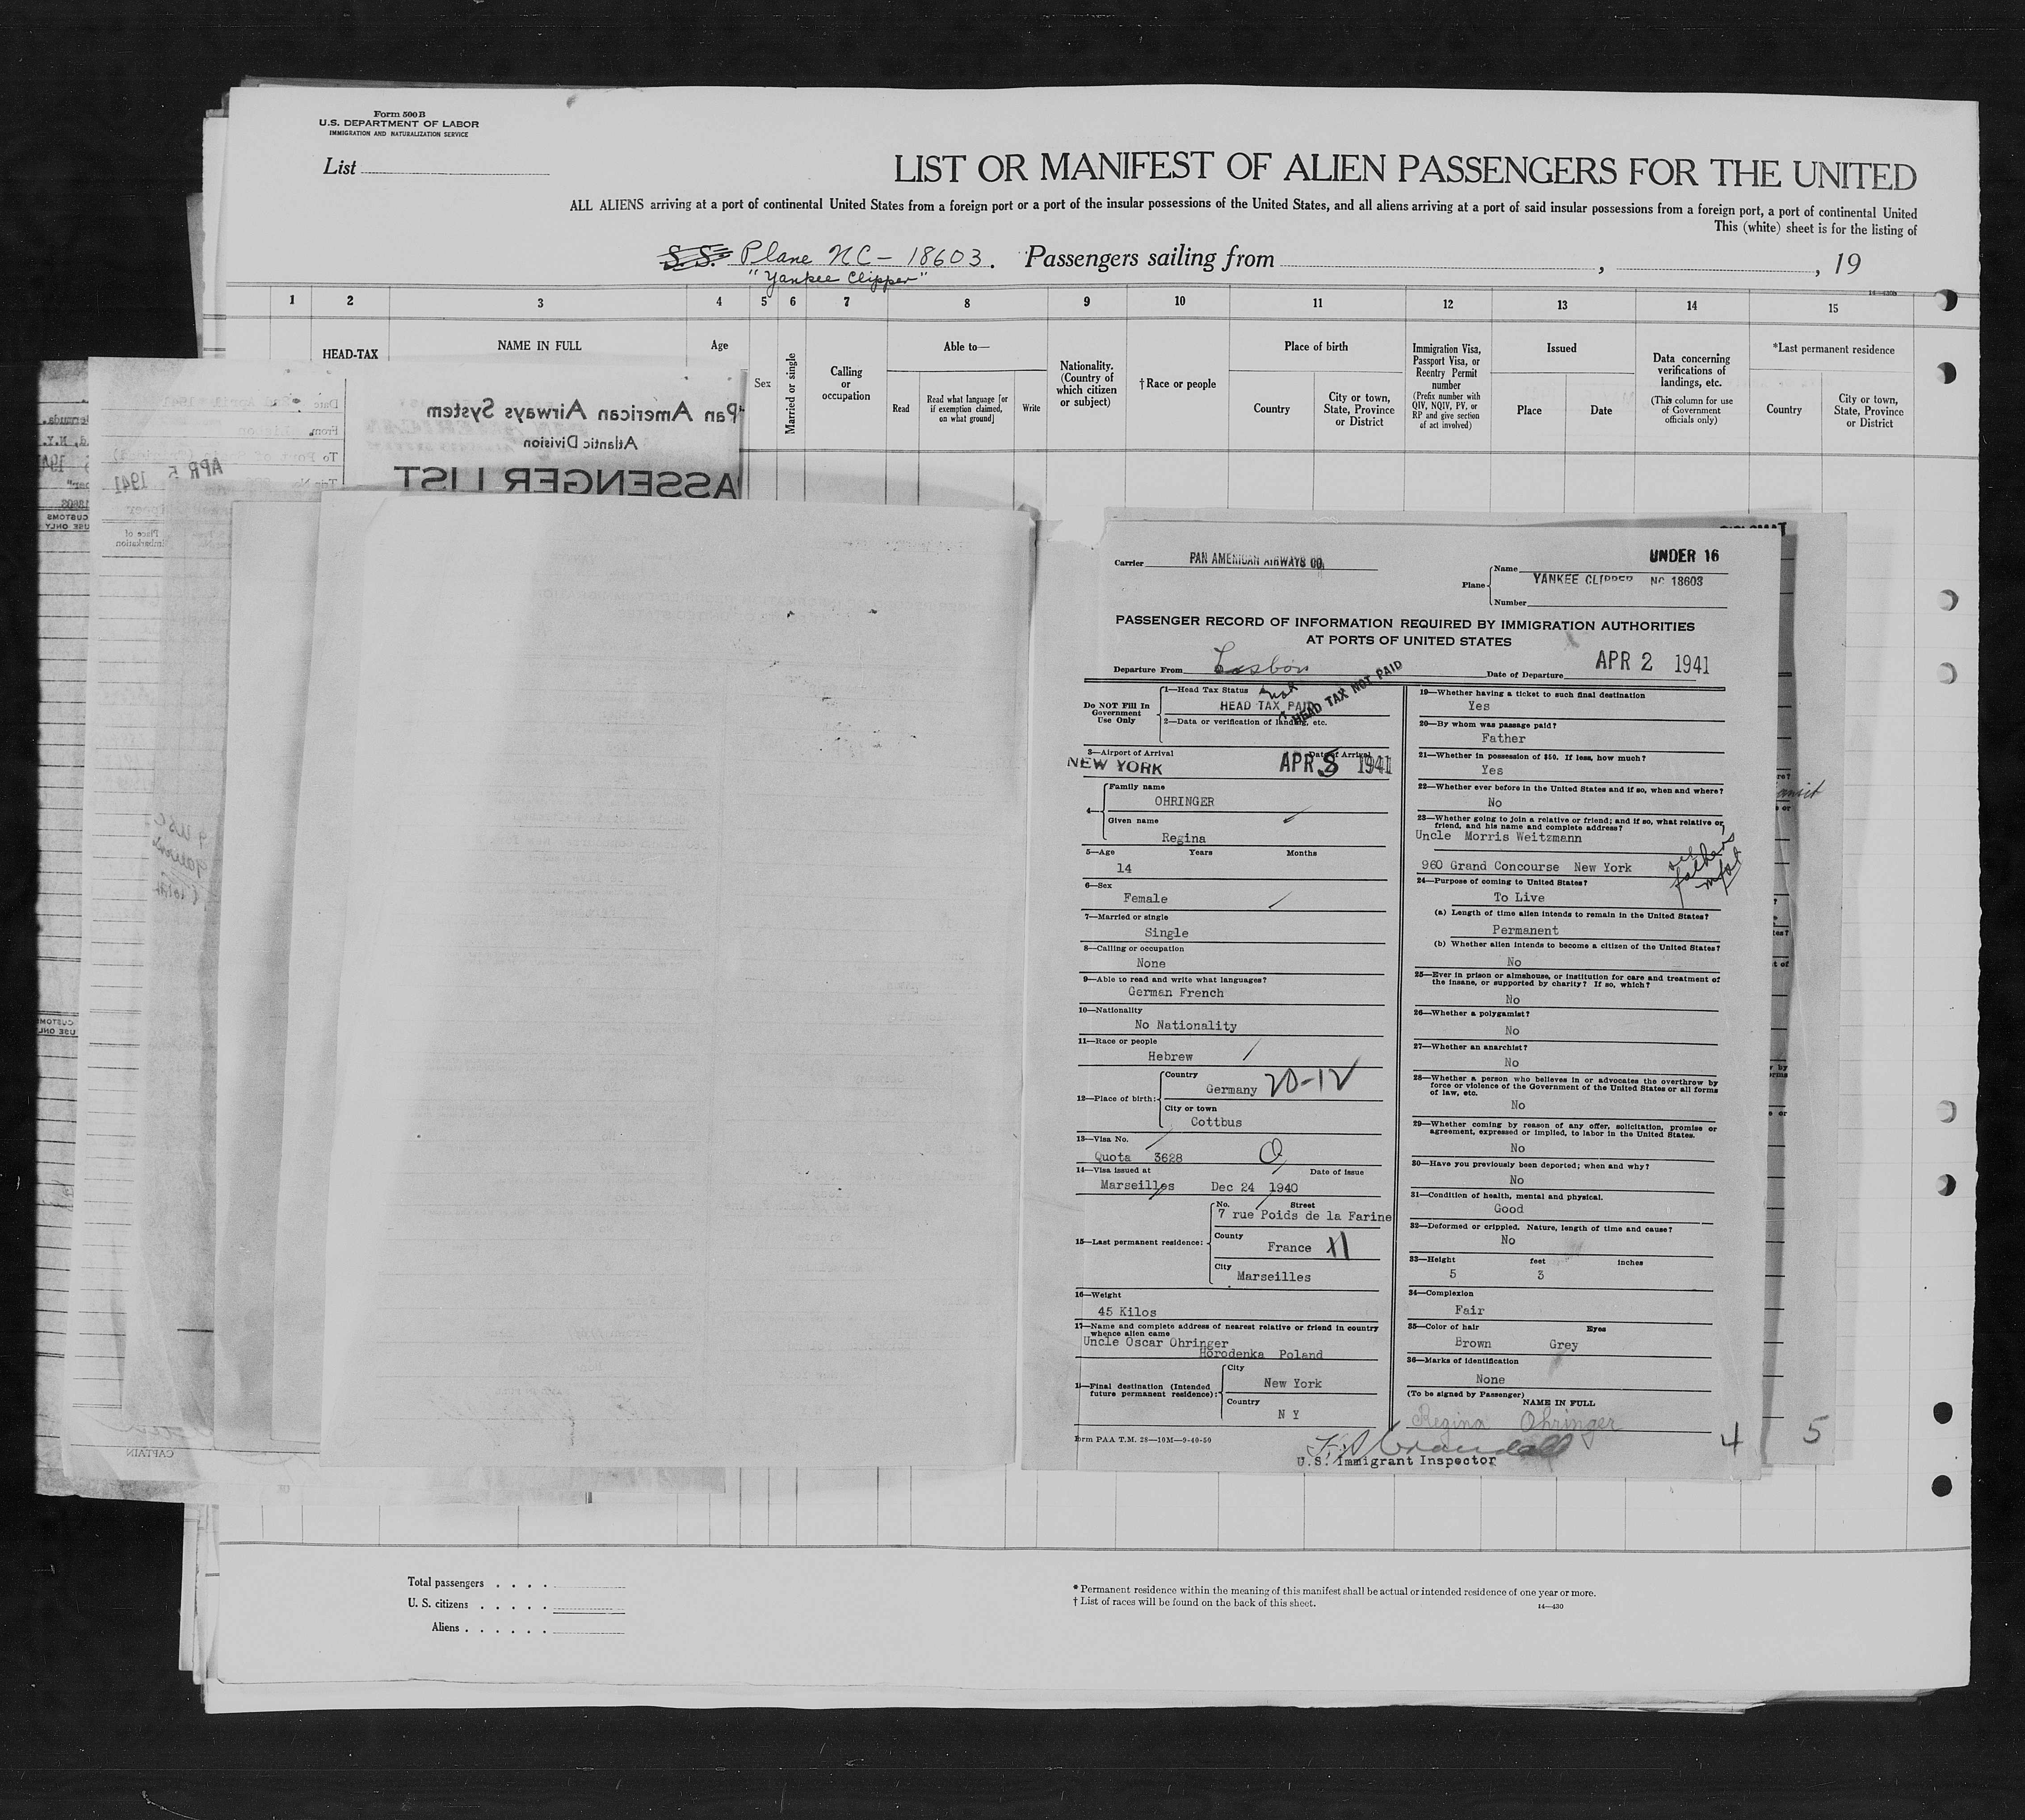 Form 500 B
U.S. DEPARTMENT OF LABOR
IMMIGRATION AND NATURALIZATION SERVICE
List
LIST OR MANIFEST OF ALIEN PASSENGERS FOR THE UNITED
ALL ALIENS arriving at a port of continental United States from a foreign port or a port of the insular possessions of the United States, and all aliens arriving at a port of said insular possessions from a foreign port, a port of continental United
This (white) sheet is for the listing of
S. S. Plane NC - 18603. Passengers sailing from , , 19
"Yankee Clipper"
14-430B
1 2 3 4 5 6 7 8 9 10 11 12 13 14 15
HEAD-TAX
NAME IN FULL
Age
Sex
Married or single
Calling or occupation
Able to—
Read
Read what language [or if exemption claimed, on what ground]
Write
Nationality. (Country of which citizen or subject)
†Race or people
Place of birth
Country
City or town, State, Province or District
Immigration Visa, Passport Visa, or Reentry Permit number
(Prefix number with QIV, NQIV, PV, or RP and give section of act involved)
Issued
Place
Date
Data concerning verifications of landings, etc.
(This column for use of Government officials only)
*Last permanent residence
Country
City or town, State, Province or District
Pan American Airways System
Atlantic Division
ASSENGER LIST
APR 5 1941
Place of
CUSTOMS
USE ONLY
CAPTAIN
UNDER 16
Carrier PAN AMERICAN AIRWAYS CO.
Plane Name YANKEE CLIPPER NC 18603
Number
PASSENGER RECORD OF INFORMATION REQUIRED BY IMMIGRATION AUTHORITIES
AT PORTS OF UNITED STATES
Departure From Lisbon
Date of Departure APR 2 1941
Do NOT Fill In
Government
Use Only
1—Head Tax Status
HEAD TAX PAID
HEAD TAX NOT PAID
2—Data or verification of landing, etc.
3—Airport of Arrival Date of Arrival
NEW YORK APR 5 1941
4— Family name
OHRINGER
Given name
Regina
5—Age Years Months
14
6—Sex
Female
7—Married or single
Single
8—Calling or occupation
None
9—Able to read and write what languages?
German French
10—Nationality
No Nationality
11—Race or people
Hebrew
12—Place of birth: Country
Germany 20-12
City or town
Cottbus
13—Visa No.
Quota 3628 Q
14—Visa issued at Date of issue
Marseilles Dec 24 1940
15—Last permanent residence: No. Street
7 rue Poids de la Farine
County
France XI
City
Marseilles
16—Weight
45 Kilos
17—Name and complete address of nearest relative or friend in country
whence alien came
Uncle Oscar Ohringer
Horodenka Poland
18—Final destination (Intended
future permanent residence): City
New York
Country
N Y
Form PAA T.M. 28—10M—9-40-50
19—Whether having a ticket to such final destination
Yes
20—By whom was passage paid?
Father
21—Whether in possession of $50. If less, how much?
Yes
22—Whether ever before in the United States and if so, when and where?
No
23—Whether going to join a relative or friend; and if so, what relative or
friend, and his name and complete address?
Uncle Morris Weitzmann
960 Grand Concourse New York
see father's mfst
24—Purpose of coming to United States?
To Live
(a) Length of time alien intends to remain in the United States?
Permanent
(b) Whether alien intends to become a citizen of the United States?
No
25—Ever in prison or almshouse, or institution for care and treatment of
the insane, or supported by charity? If so, which?
No
26—Whether a polygamist?
No
27—Whether an anarchist?
No
28—Whether a person who believes in or advocates the overthrow by
force or violence of the Government of the United States or all forms
of law, etc.
No
29—Whether coming by reason of any offer, solicitation, promise or
agreement, expressed or implied, to labor in the United States.
No
30—Have you previously been deported; when and why?
No
31—Condition of health, mental and physical.
Good
32—Deformed or crippled. Nature, length of time and cause?
No
33—Height feet inches
5 3
34—Complexion
Fair
35—Color of hair Eyes
Brown Grey
36—Marks of identification
None
(To be signed by Passenger)
NAME IN FULL
Regina Ohringer
U.S. Immigrant Inspector
4
5
Total passengers
U. S. citizens
Aliens
* Permanent residence within the meaning of this manifest shall be actual or intended residence of one year or more.
† List of races will be found on the back of this sheet.
14—430